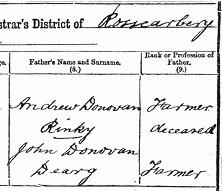 strar's District of Rosscarbery
Father's Name and Surname.
(8.)
Rank or Profession of
Father.
(9.)
Andrew Donovan
Rinky
Farmer
deceased
John Donovan
Dearg
Farmer